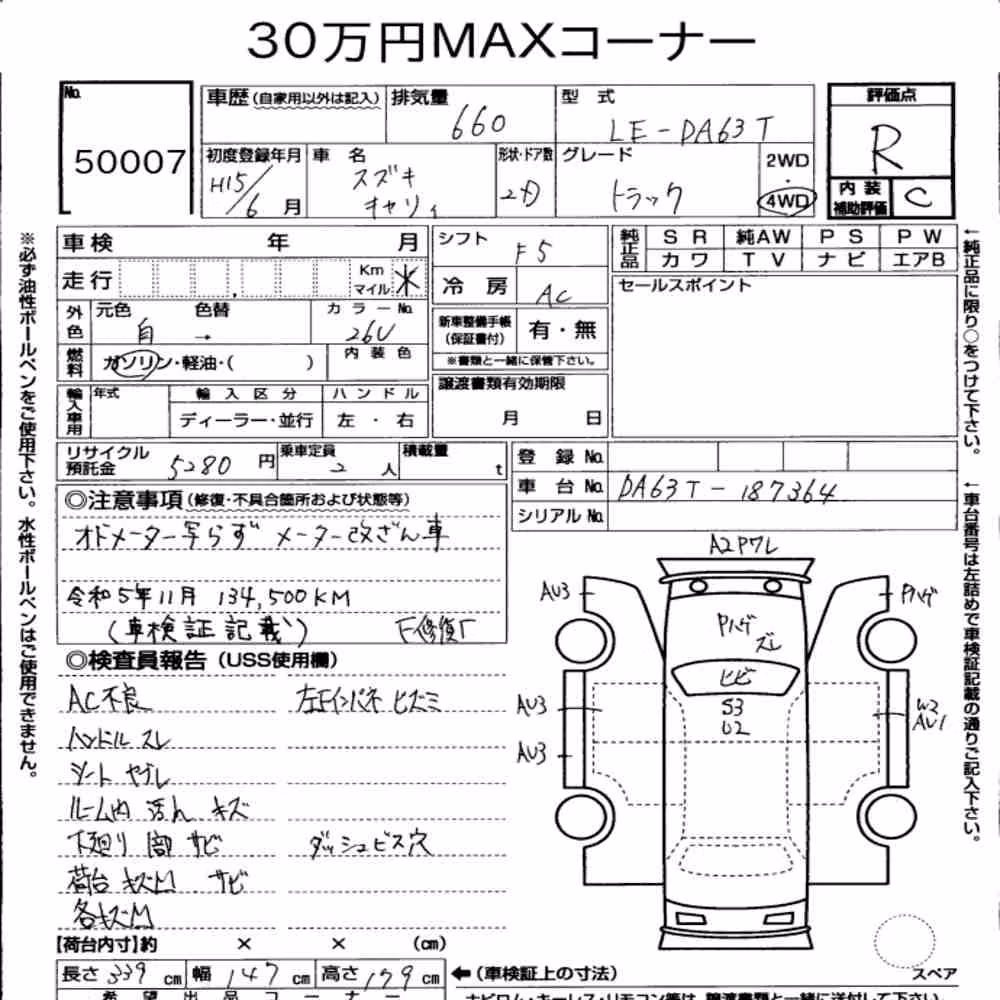 30万円MAXコーナー
No. 50007
車歴(自家用以外は記入)
排気量 660
型式 LE-DA63T
評価点 R
初度登録年月 H15/6月
車名 スズキ キャリィ
形状・ドア数 2D
グレード トラック
2WD・4WD
内装補助評価 C
車検 年 月
シフト F5
純正品 SR 純AW PS PW
カワ TV ナビ エアB
走行 Km マイル
冷房 AC
セールスポイント
外色 元色 白 色替 → カラーNo. 26U
新車整備手帳(保証書付) 有・無
※書類と一緒に保管下さい。
燃料 ガソリン・軽油・( )
内装色
譲渡書類有効期限 月 日
輸入車用 年式 輸入区分 ディーラー・並行 ハンドル 左・右
リサイクル預託金 5280円
乗車定員 2人
積載量 t
登録No.
車台No. DA63T-187364
シリアルNo.
◎注意事項(修復・不具合箇所および状態等)
オドメーター写らず メーター改ざん車
令和5年11月 134,500KM
(車検証記載) F修復
◎検査員報告(USS使用欄)
AC不良 左Fインパネ ヒズミ
ハンドル スレ
シート ヤブレ
ルーム内 汚れ キズ
下廻り 図 サビ ダッシュビス穴
荷台 キズM サビ
各キズM
A2P7L
AU3
Pハゲ
Pハゲ
ズレ
ヒビ
AU3
S3
U2
W2
AU1
AU3
【荷台内寸】約 × × (cm)
長さ 339cm 幅 147cm 高さ 179cm
←(車検証上の寸法)
スペア
希望出品コーナー
※必ず油性ボールペンをご使用下さい。水性ボールペンはご使用できません。
←純正品に限り○をつけて下さい。
←車台番号は左詰めで車検証記載の通りご記入下さい。